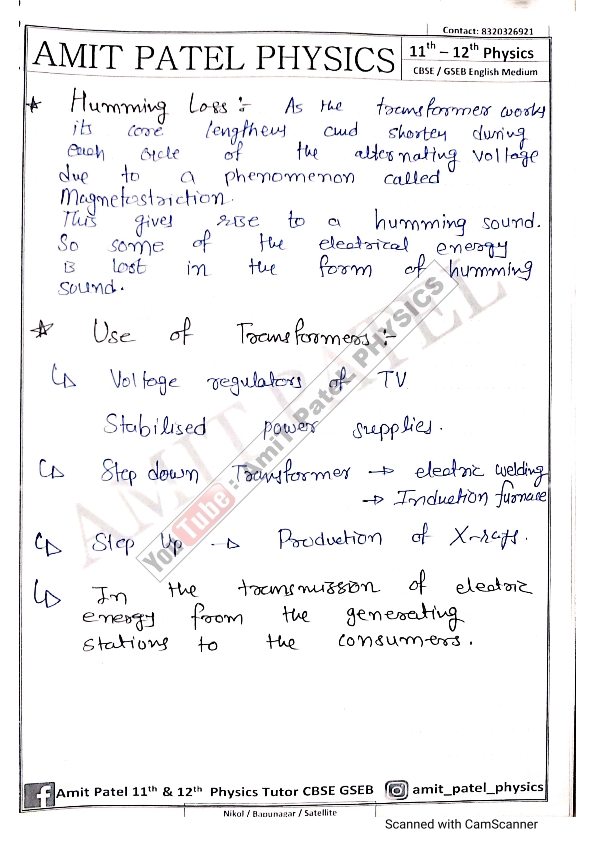 Contact: 8320326921
AMIT PATEL PHYSICS
11th – 12th Physics
CBSE / GSEB English Medium
★ Humming Loss :- As the transformer works
its core lengthens and shorten during
each cicle of the alternating voltage
due to a phenomenon called
Magnetostriction.
This gives rise to a humming sound.
So some of the electrical energy
is lost in the form of humming
sound.
★ Use of Transformers :-
↳ Voltage regulators of TV
Stabilised power supplies.
↳ Step down Transformer → electric welding
→ Induction furnace
↳ Step Up → Production of X-rays.
↳ In the transmission of electric
energy from the generating
stations to the consumers.
AMIT PATEL
YouTube : Amit Patel PHYSICS
Amit Patel 11th & 12th Physics Tutor CBSE GSEB
amit_patel_physics
Nikol / Bapunagar / Satellite
Scanned with CamScanner